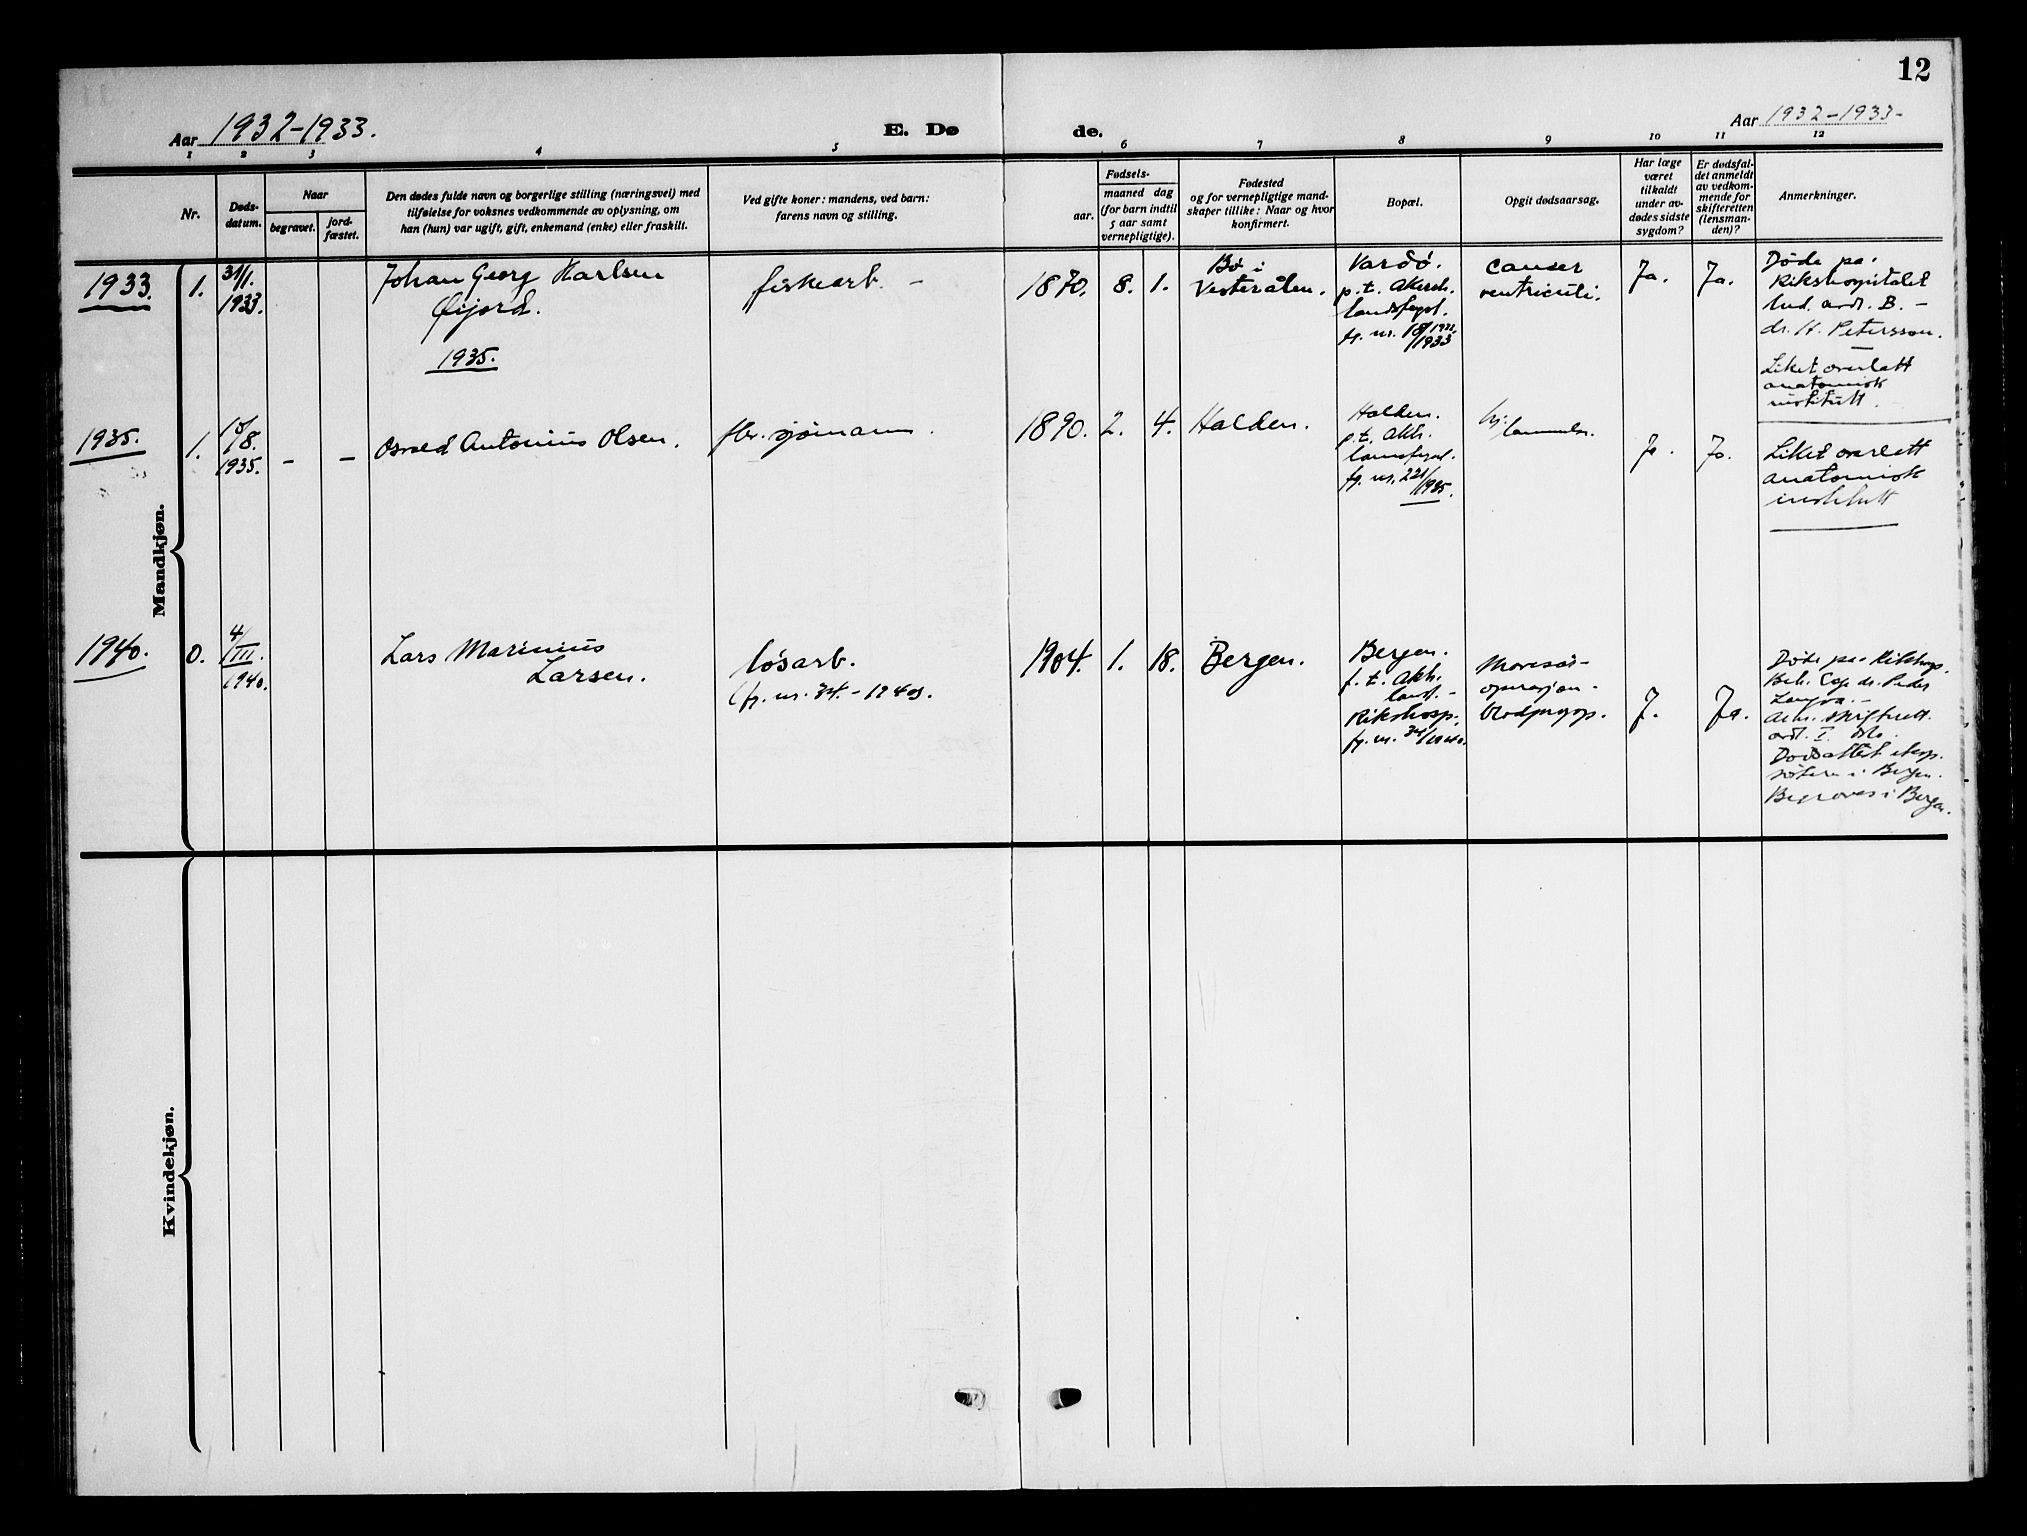 12
Aar 1932-1933.
E. Dø
de.
Aar 1932-1933-
1 2 3 4 5 6 7 8 9 10 11 12
Nr.
Døds-
datum.
Naar
begravet.
jord-
fæstet.
Den dødes fulde navn og borgerlige stilling (næringsvei) med
tilføielse for voksnes vedkommende av oplysning, om
han (hun) var ugift, gift, enkemand (enke) eller fraskilt.
Ved gifte koner: mandens, ved barn:
farens navn og stilling.
Fødsels-
aar.
maaned dag
(for barn indtil
5 aar samt
vernepligtige).
Fødested
og for vernepligtige mand-
skaper tillike: Naar og hvor
konfirmert.
Bopæl.
Opgit dødsaarsag.
Har læge
været
tilkaldt
under av-
dødes sidste
sygdom?
Er dødsfal-
det anmeldt
av vedkom-
mende for
skifteretten
(lensman-
den)?
Anmerkninger.
Mandkjøn.
1933.
1.
31/1.
1933.
Johan Georg Karlsen
Øijord.
fiskearb. -
1870. 8. 1.
Bø i
Vesterålen.
Vardø.
p.t. Akersh.
landsfgsl.
fg. nr.
/1933
Cancer
ventriculi.
Ja.
Ja.
Døde på
Rikshospitalet
Med. avd. B. -
dr. H. Petersson.
Liket overlatt
anatomisk
institutt.
1935.
1935.
1.
/8.
1935.
-
-
Osvald Antonius Olsen.
fhv. sjømann.
1890. 2. 4.
Halden.
Halden.
p.t. Akh.
landsfgsl.
fg. nr. 221/
/1935.
Hj.
lammelse.
J.
Ja.
Liket overlatt
anatomisk
institutt
1940.
0.
4/
III.
1940.
Lars Marinius
Larsen.
løsarb.
(fg. nr. 34. - 1940).
1904. 1. 18.
Bergen.
Bergen.
p.t. Akh.
land. -
Rikshosp.
fg. nr. 34/1940.
Mavesår-
operasjon.
Blodpropp.
J.
Ja.
Døde på Rikshosp.
dr. Peder
skifterett.
avd. I. Oslo.
Dødsattest
i Bergen.
Begraves i Bergen.
Kvindekjøn.